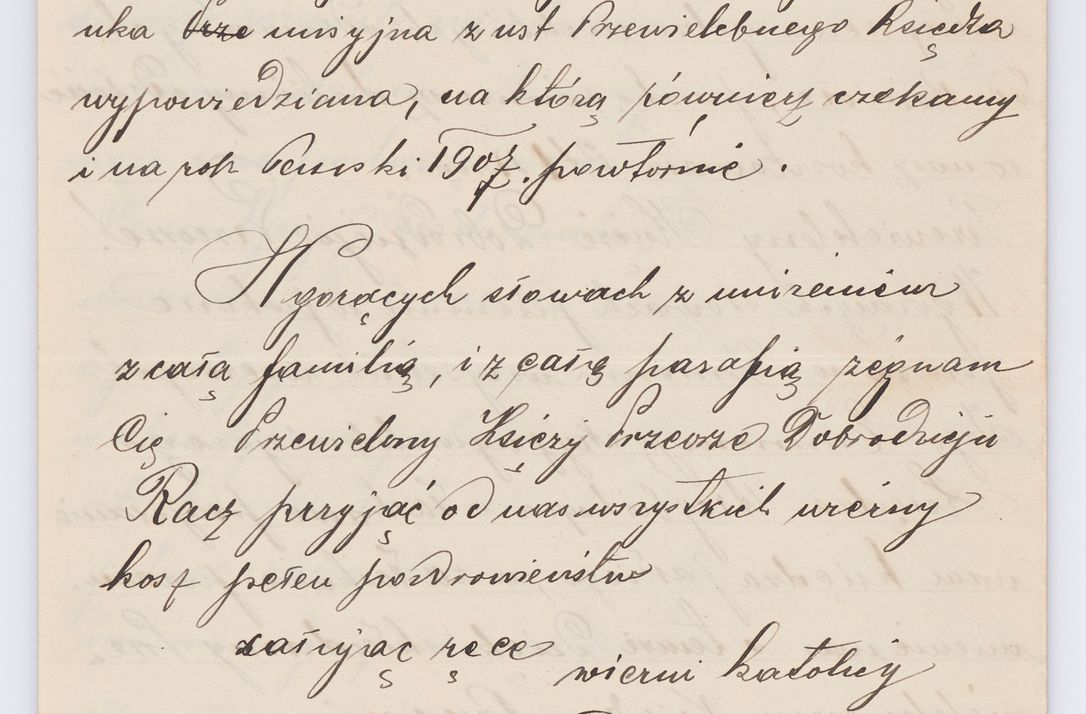 uka ~~Prze~~ misyjna z ust Przewielebnego Księdza
wypowiedziana, na którą również czekamy
i na rok Penski 1907. powtórnie.
W gorących słowach z uniżeniem
z całą familią, i z całą parafią żegnam
Cię Przewielbny Księży Przeorze Dobrodzieju
Racz przyjąć od nas wszystkich wierny
kosz pełen pozdrowieństw
całując ręce
wierni katolicy